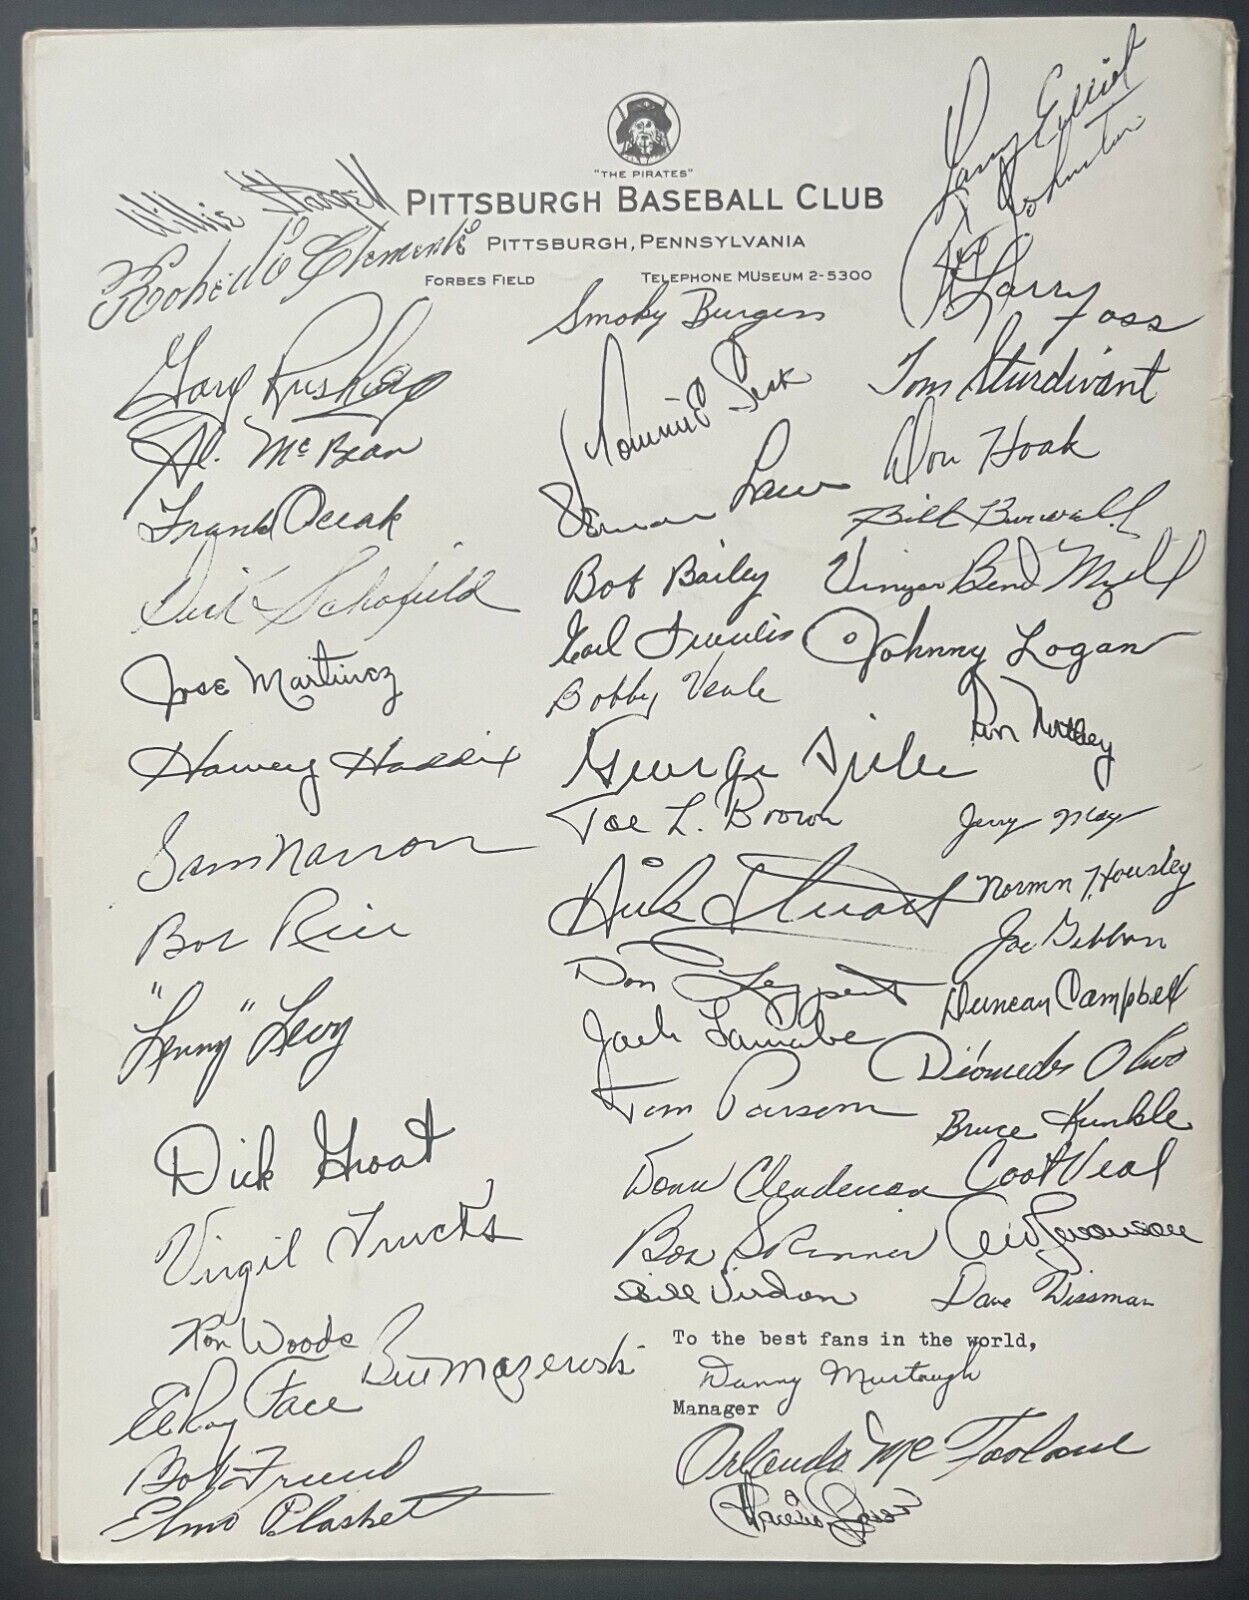 "THE PIRATES"
PITTSBURGH BASEBALL CLUB
PITTSBURGH, PENNSYLVANIA
FORBES FIELD TELEPHONE MUSEUM 2-5300
Willie Stargell
Roberto Clemente
Gary Rushing
Al. McBean
Frank Oceak
Dick Schofield
Jose Martinez
Harvey Haddix
Sam Narron
Bob Rice
"Lenny" Levy
Dick Groat
Virgil Trucks
Ron Woods
Bill Mazeroski
ElRoy Face
Bob Friend
Elmo Plaskett
Smoky Burgess
Tommie Sisk
Vernon Law
Bob Bailey
Earl Francis
Bobby Veale
George Sisler
Joe L. Brown
Dick Stuart
Don Leppert
Jack Lamabe
Tom Parsons
Donn Clendenon
Bob Skinner
Bill Virdon
Larry Elliot
Rex Johnston
Larry Foss
Tom Sturdivant
Don Hoak
Bill
Vinegar Bend Mizell
Johnny Logan
Jerry May
Norman Housley
Joe Gibbon
Duncan Campbell
Diómedes Olivo
Bruce Kunkle
Coot Veal
Dave Wissman
To the best fans in the world,
Danny Murtaugh
Manager
Orlando McFarlane